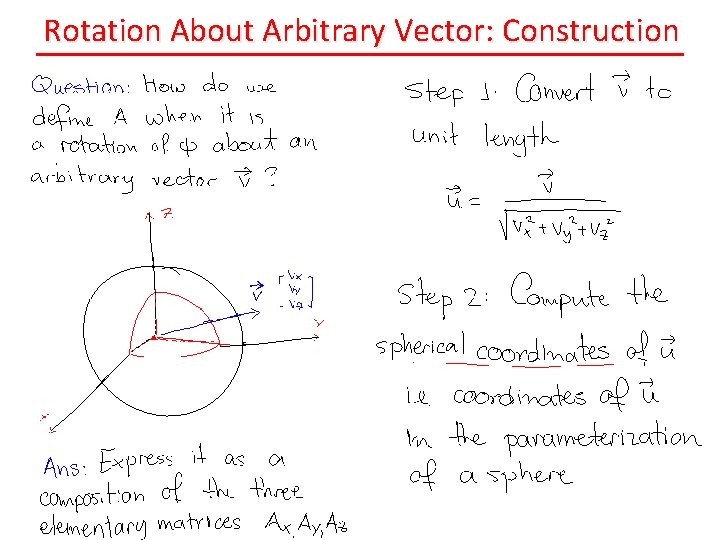 Rotation About Arbitrary Vector: Construction
Question: How do we
define A when it is
a rotation of φ about an
arbitrary vector v⃗ ?
z
v⃗ [Vx
Vy
Vz]
Y
x
Ans: Express it as a
composition of the three
elementary matrices Ax, Ay, Az
Step 1. Convert v⃗ to
unit length
u⃗ = v⃗ / √(Vx² + Vy² + Vz²)
Step 2: Compute the
spherical coordinates of u⃗
i.e coordinates of u⃗
in the parameterization
of a sphere